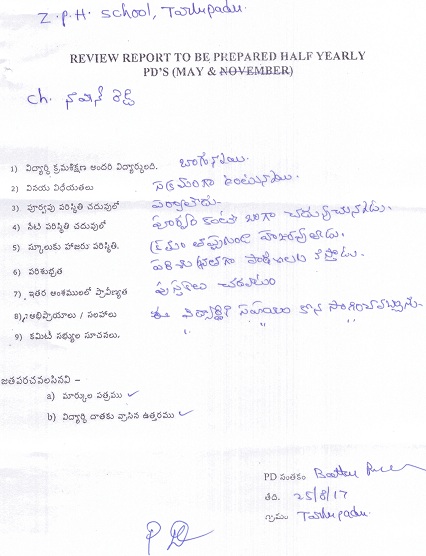 Z.P.H. School, Tarlupadu.
REVIEW REPORT TO BE PREPARED HALF YEARLY
PD'S (MAY & NOVEMBER)
Ch.
1) విద్యార్థి క్రమశిక్షణ అందరి విద్యార్థులది. బాగున్నాయి.
2) వినయ విధేయతలు సక్రమంగా ఉంటున్నాయి.
3) పూర్వపు పరిస్థితి చదువులో
4) నేటి పరిస్థితి చదువులో పూర్వం కంటె బాగా చదువుచున్నాడు.
5) స్కూలుకు హాజరు పరిస్థితి. క్రమం తప్పకుండా
6) పరిశుభ్రత
7) ఇతర అంశములలో ప్రావీణ్యత పుస్తకాలు చదవటం
8) అభిప్రాయాలు / సలహాలు ఈ విద్యార్థికి సహాయం కొన సాగించవచ్చును.
9) కమిటీ సభ్యుల సూచనలు. " " "
జతపరచవలసినవి –
a) మార్కుల పత్రము ✓
b) విద్యార్థి దాతకు వ్రాసిన ఉత్తరము ✓
PD సంతకం
తేది. 25/8/17
గ్రామం Tarlupadu.
PD